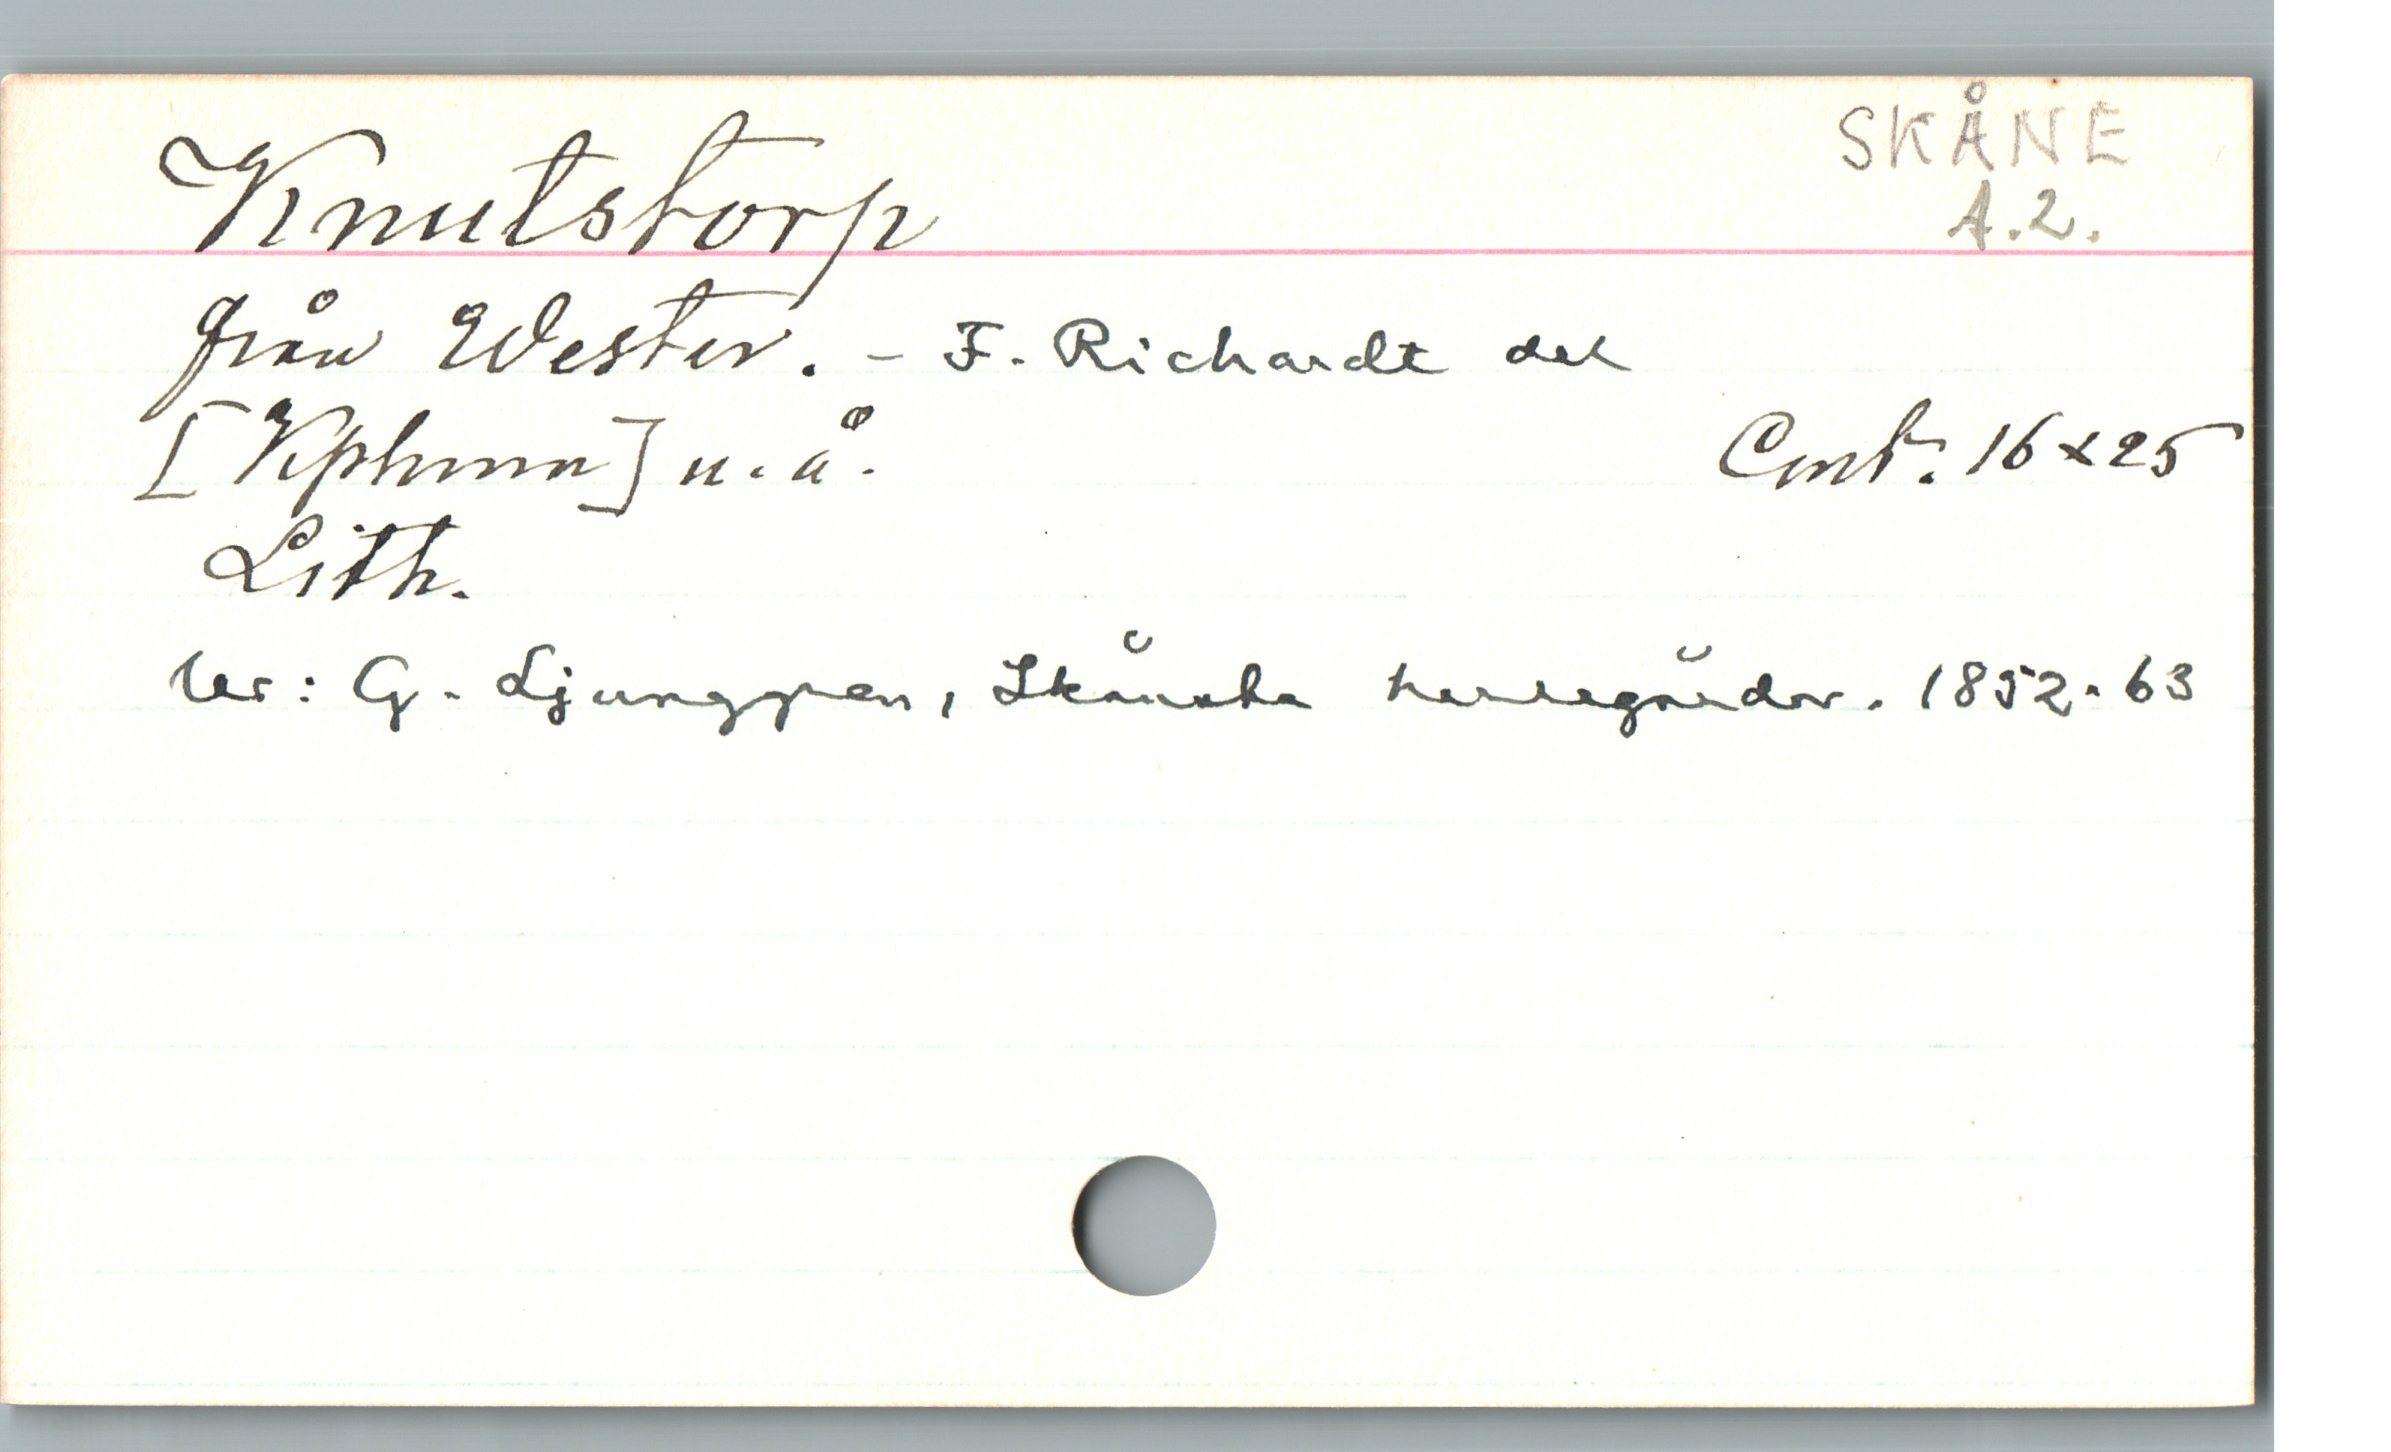 SKÅNE
A.2.
Knutstorp
från Wester. - F. Richardt del
[Kphmn] u.å. Cmt. 16x25
Lith.
Ur: G. Ljunggren, Skånska herregårdar. 1852-63